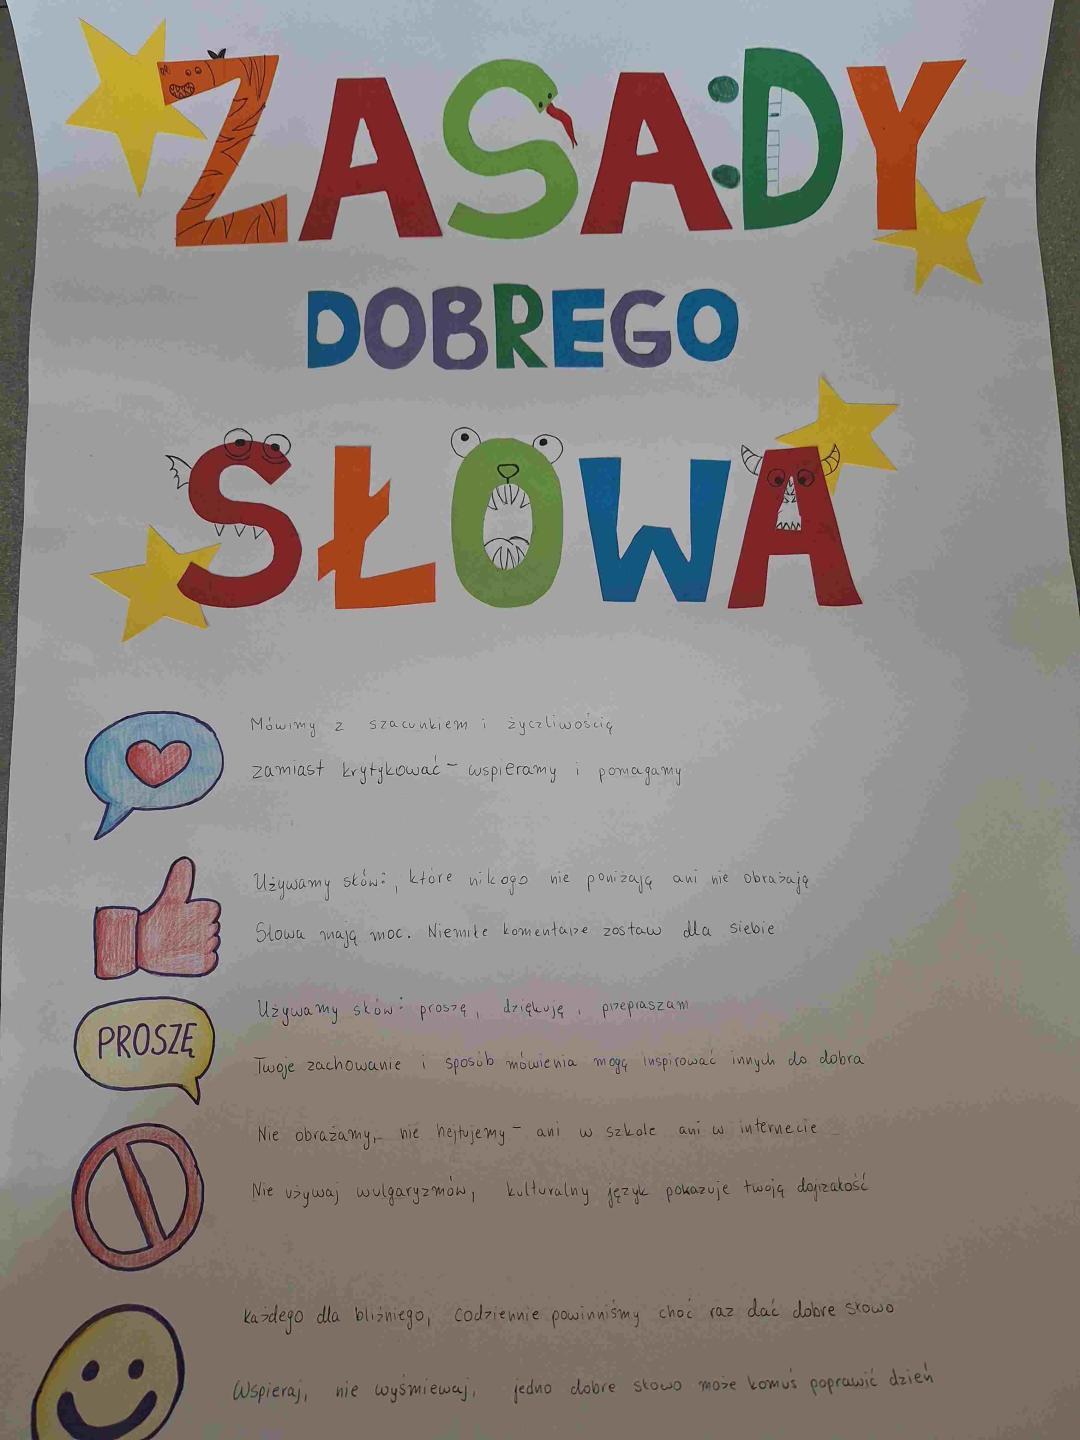 ZASADY
DOBREGO
SŁOWA
Mówimy z szacunkiem i życzliwością
zamiast krytykować - wspieramy i pomagamy
Używamy słów:, które nikogo nie poniżają ani nie obrażają
Słowa mają moc. Niemiłe komentarze zostaw dla siebie
Używamy słów: proszę, dziękuję, przepraszam
PROSZĘ
Twoje zachowanie i sposób mówienia mogą inspirować innych do dobra
Nie obrażamy, nie hejtujemy - ani w szkole ani w internecie
Nie używaj wulgaryzmów, kulturalny język pokazuje twoją dojrzałość
Każdego dla bliźniego, codziennie powinniśmy choć raz dać dobre słowo
Wspieraj, nie wyśmiewaj, jedno dobre słowo może komuś poprawić dzień